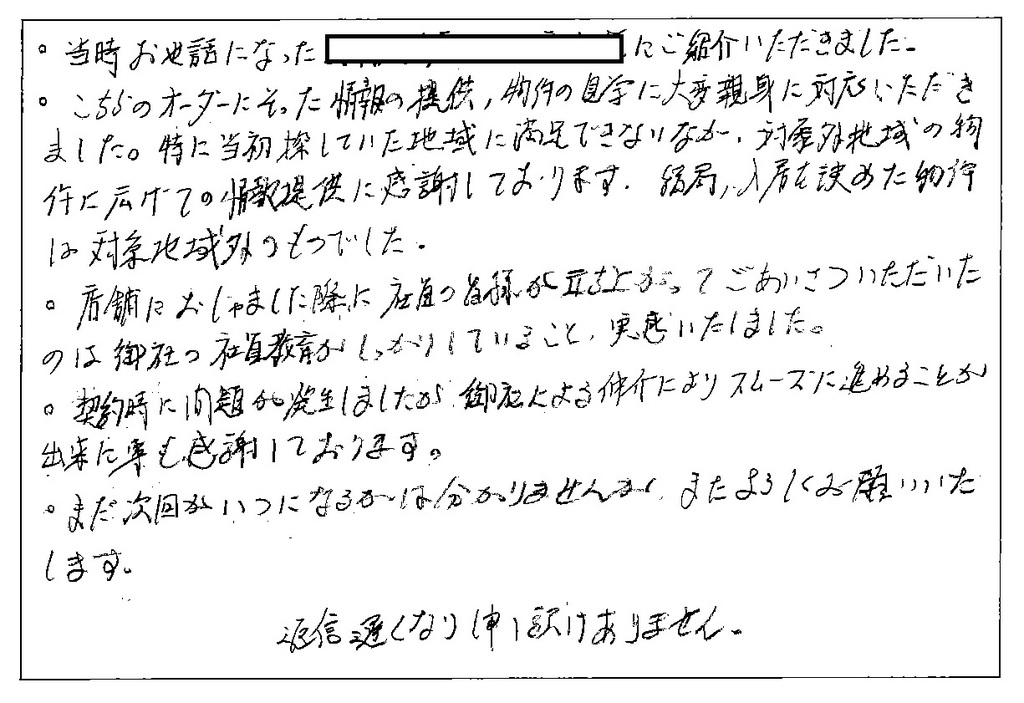 。当時お世話になった
にご紹介いただきました。
。こちらのオーダーにそった情報の提供,物件の見学に大変親身に対応いただき
ました。特に当初探していた地域に満足できないなか、対象外地域の物
件に広げての情報提供に感謝しております。結局,入居を決めた物件
は対象地域外のものでした。
。店舗におじゃました際に社員の皆様が立ち上がってごあいさついただいた
のは御社の社員教育がしっかりしていること、実感いたしました。
。契約時に問題が発生しましたが御社による仲介によりスムーズに進めることが
出来た事も感謝しております。
。まだ次回がいつになるかは分かりませんが、またよろしくお願いいた
します。
返信遅くなり申し訳けありません。